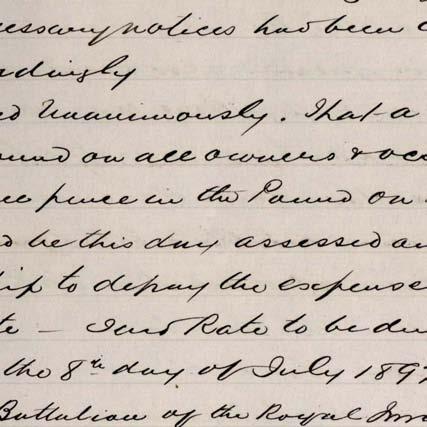 essary notices had been
rdingly
ed Unanimously. That a
ound on all owners & occ
ee pence in the Pound on
d be this day assessed an
hip to defray the expense
te — Said Rate to be du
the 8th day of July 189
Battalion of the Royal Irr